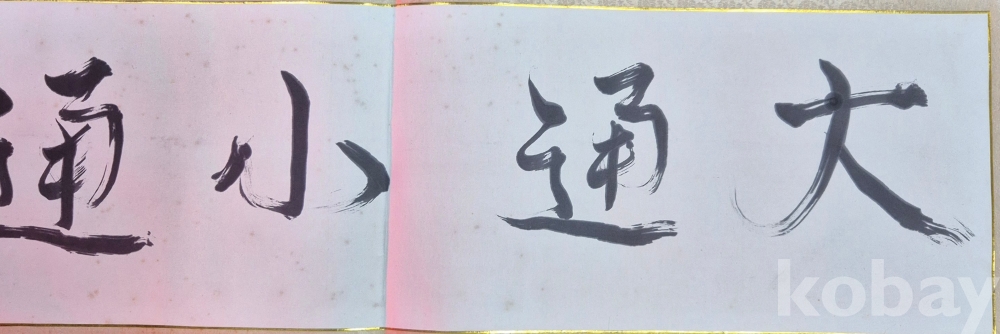 大通小通
kobay